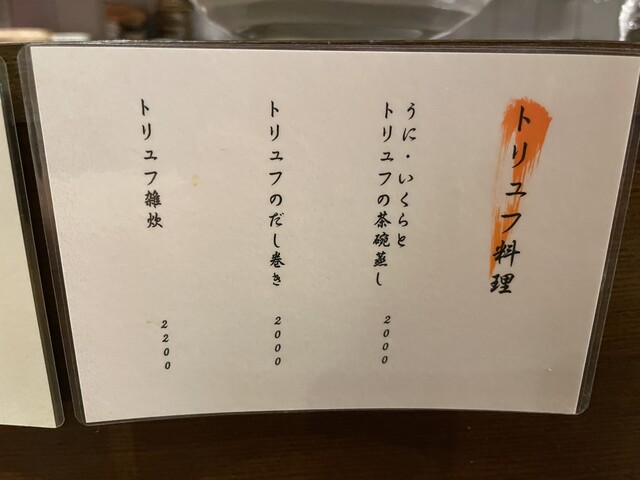 トリュフ料理
うに・いくらと
トリュフの茶碗蒸し
2000
トリュフのだし巻き
2000
トリュフ雑炊
2200